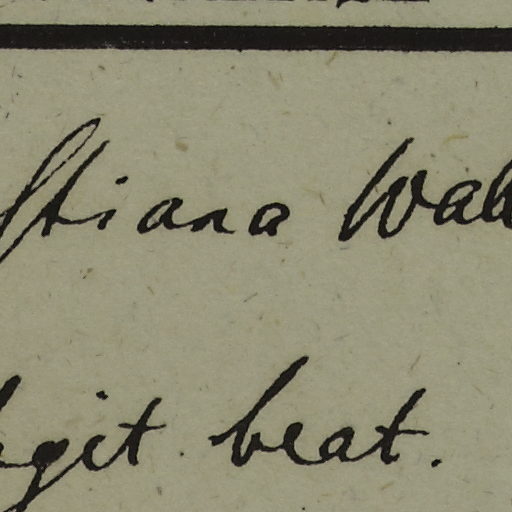 stiana Wall
legit beat.